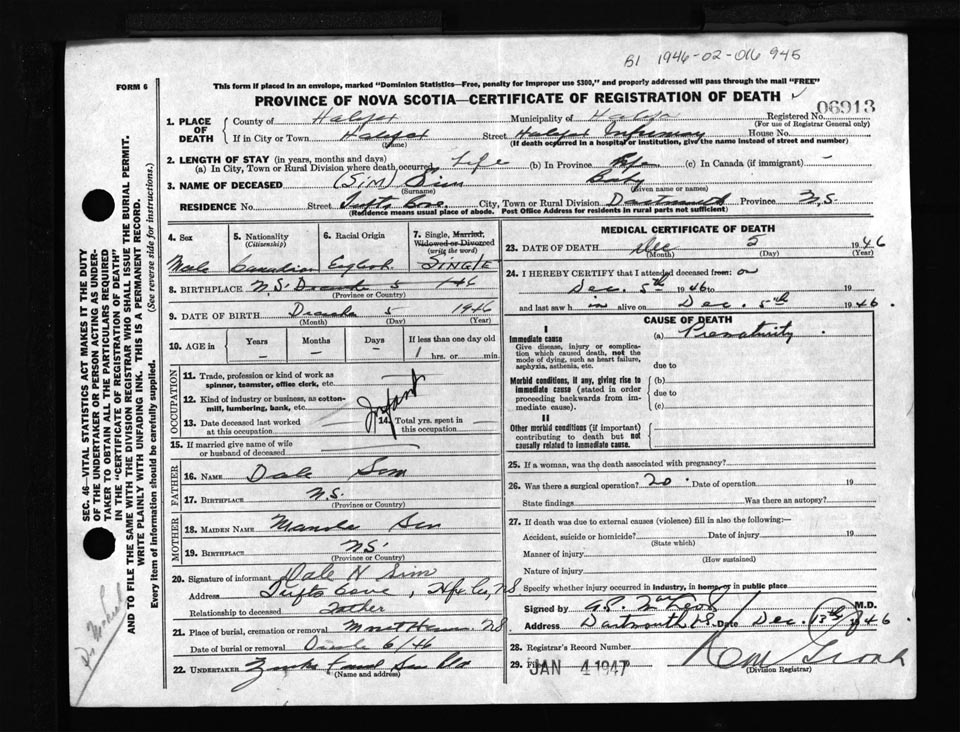 B1 1946-02-016 945
FORM 6
This form if placed in an envelope, marked "Dominion Statistics—Free, penalty for improper use $300," and properly addressed will pass through the mail "FREE"
PROVINCE OF NOVA SCOTIA—CERTIFICATE OF REGISTRATION OF DEATH
06913
1. PLACE OF DEATH
County of Halifax Municipality of Registered No.
(For use of Registrar General only)
If in City or Town Halifax Street Halifax Infirmary House No.
(Name) (If death occurred in a hospital or institution, give its name instead of street and number)
2. LENGTH OF STAY (in years, months and days)
(a) In City, Town or Rural Division where death occurred Life (b) In Province Life (c) In Canada (if immigrant) -
3. NAME OF DECEASED (SIM) Sim Baby
(Surname) (Given name or names)
RESIDENCE No. Street Tufts Cove City, Town or Rural Division Dartmouth Province N.S.
(Residence means usual place of abode. Post Office Address for residents in rural parts not sufficient)
4. Sex
Male
5. Nationality
(Citizenship)
Canadian
6. Racial Origin
English
7. Single, Married,
Widowed or Divorced
(write the word)
SINGLE
8. BIRTHPLACE N.S.
(Province or Country)
9. DATE OF BIRTH 5 1946
(Month) (Day) (Year)
10. AGE in Years Months Days If less than one day old
- - - 1 hrs. or min.
OCCUPATION
11. Trade, profession or kind of work as
spinner, teamster, office clerk, etc.
12. Kind of industry or business, as cotton-
mill, lumbering, bank, etc.
Infant
13. Date deceased last worked
at this occupation
14. Total yrs. spent in
this occupation
15. If married give name of wife
or husband of deceased
FATHER
16. NAME Dale Sim
17. BIRTHPLACE N.S.
(Province or Country)
MOTHER
18. MAIDEN NAME
19. BIRTHPLACE N.S.
(Province or Country)
20. Signature of informant Dale H Sim
Address Tufts Cove, Hfx Co, NS
Relationship to deceased Father
21. Place of burial, cremation or removal NS
Date of burial or removal 6/46
22. UNDERTAKER
(Name and address)
MEDICAL CERTIFICATE OF DEATH
23. DATE OF DEATH Dec 5 1946
(Month) (Day) (Year)
24. I HEREBY CERTIFY that I attended deceased from: on
Dec. 5th 1946 to 19
and last saw h im alive on Dec. 5th 1946.
CAUSE OF DEATH
I
Immediate cause
Give disease, injury or complica-
tion which caused death, not the
mode of dying, such as heart failure,
asphyxia, asthenia, etc.
(a) Prematurity
due to
Morbid conditions, if any, giving rise to
immediate cause (stated in order
proceeding backwards from im-
mediate cause).
(b)
due to
(c)
II
Other morbid conditions (if important)
contributing to death but not
causally related to immediate cause.
25. If a woman, was the death associated with pregnancy?
26. Was there a surgical operation? no. Date of operation 19
State findings Was there an autopsy?
27. If death was due to external causes (violence) fill in also the following:—
Accident, suicide or homicide? Date of injury 19
(State which)
Manner of injury
(How sustained)
Nature of injury
Specify whether injury occurred in industry, in home, or in public place
Signed by M.D.
Address Dartmouth N.S. Date Dec. 13th 1946
28. Registrar's Record Number
29. Filed JAN 4 1947
(Division Registrar)
SEC. 46—VITAL STATISTICS ACT MAKES IT THE DUTY
OF THE UNDERTAKER OR PERSON ACTING AS UNDER-
TAKER TO OBTAIN ALL THE PARTICULARS REQUIRED
IN THE "CERTIFICATE OF REGISTRATION OF DEATH"
AND TO FILE THE SAME WITH THE DIVISION REGISTRAR WHO SHALL ISSUE THE BURIAL PERMIT.
WRITE PLAINLY WITH UNFADING INK. THIS IS A PERMANENT RECORD.
Every item of information should be carefully supplied. (See reverse side for instructions.)